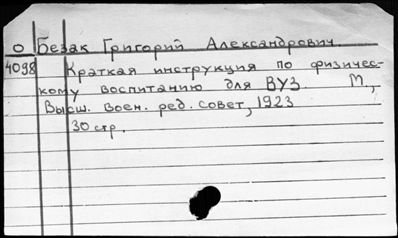 О Безак Григорий Александрович.
4098 Краткая инструкция по физичес-
кому воспитанию для ВУЗ. М.,
Высш. воен. ред. совет, 1923
30 стр.